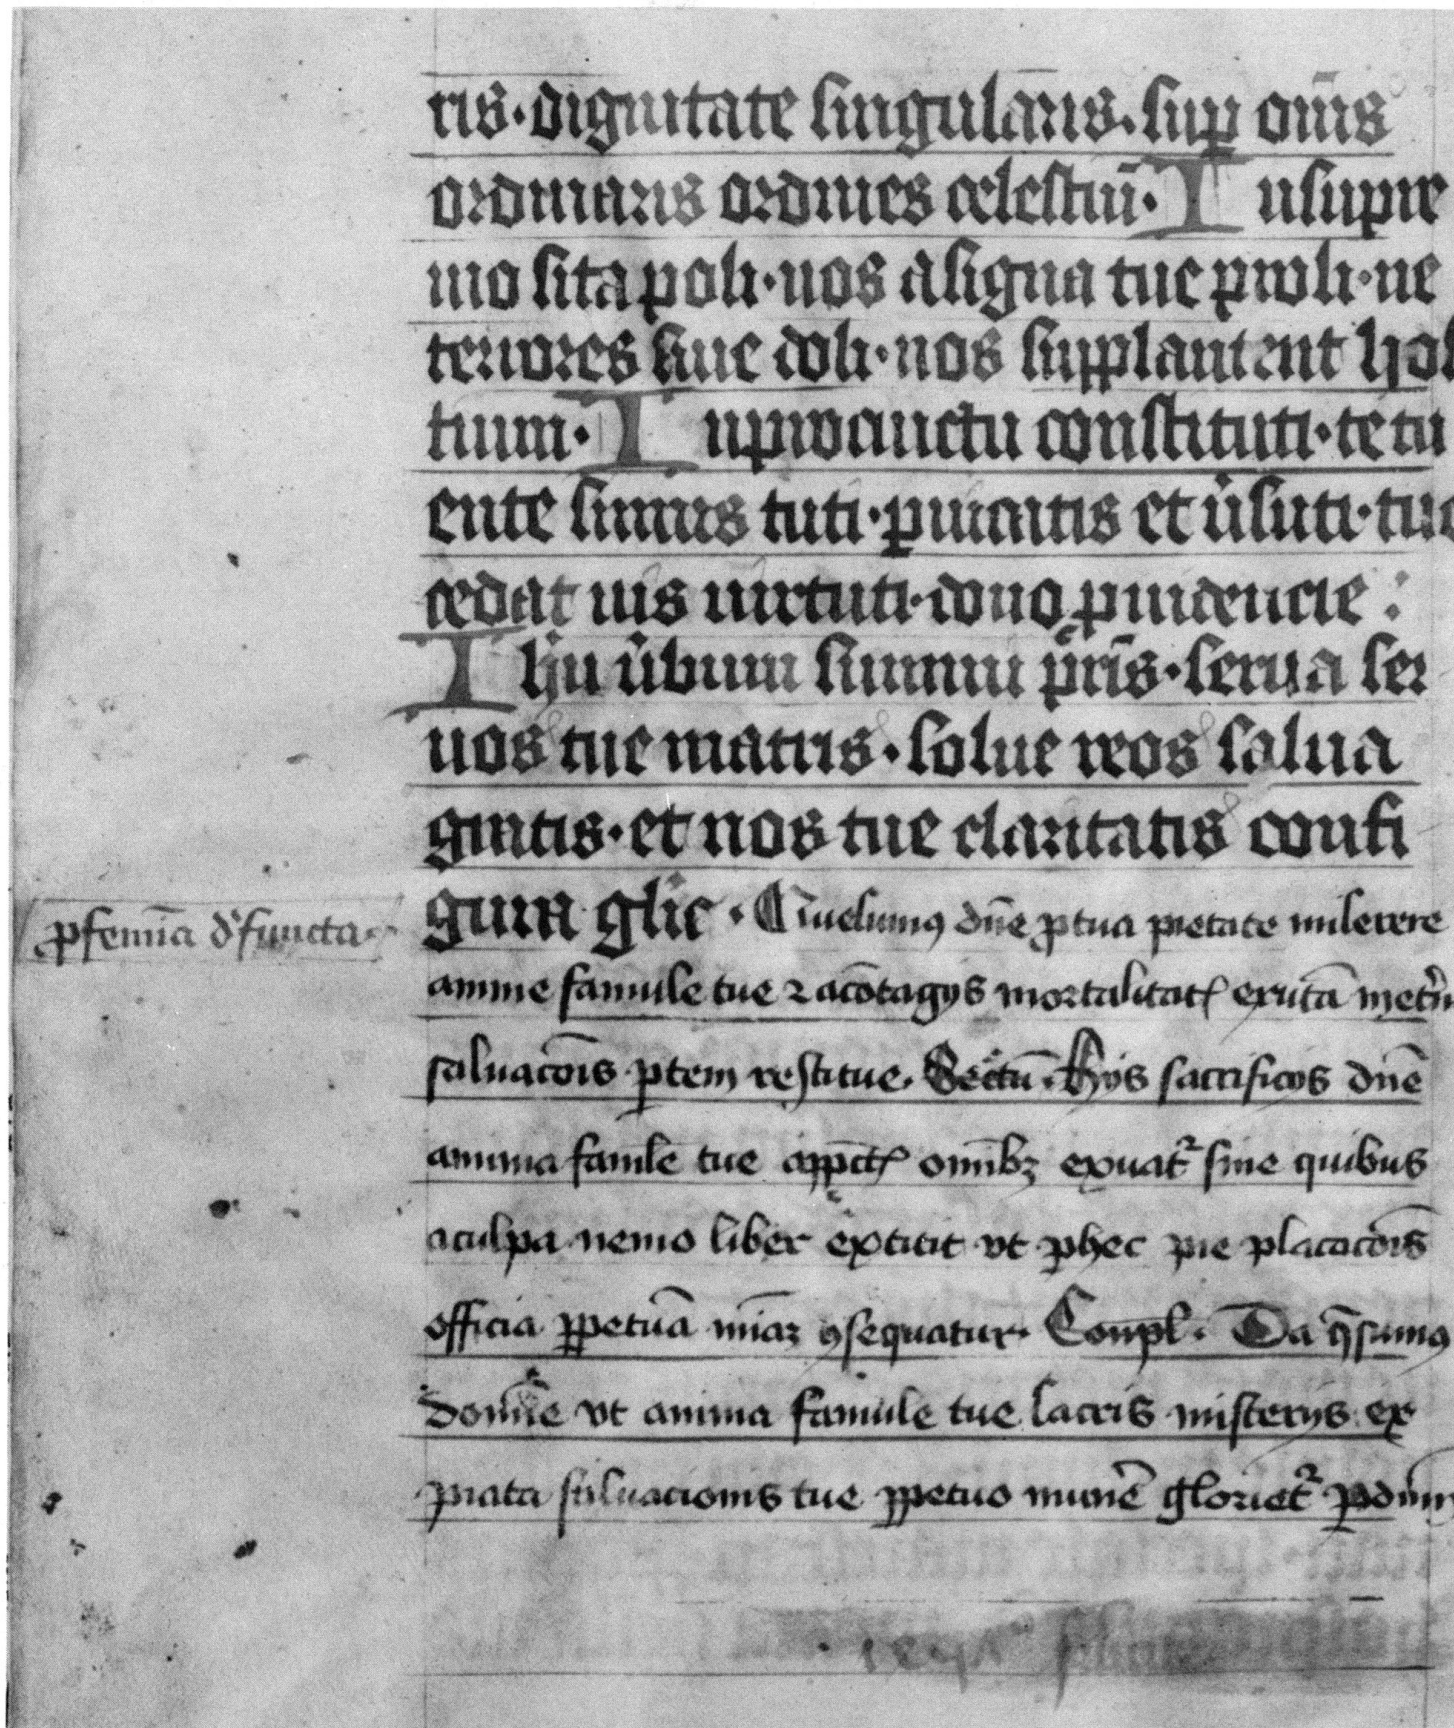 ris·dignitate singularis·sup om̄s
ordinaris ordines celestiū· In supre
mo sita poli·nos assigna tue proli·ne
terrores siue doli·nos supplantent hos
tium· In procinctu constituti·te tu
ente simus tuti·puicacis et u̓suti·tue
cedat uis uirtuti·dono puidencie :
Ihu u̓bum summi pr̄is·serua ser
uos tue matris·solue reos salua
gratis·et nos tue claritatis confi
gura glīe · Quesumꝯ dn̄e ꝓ tua pietate miserere
ꝓ femīa dᵉfuncta
anime famule tue ⁊ acōtagijs mortalitatꝭ exutā
saluacōis ꝑtem restitue. Secᵉtū. Hijs sacrificijs dn̄e
anima famlē tue a pp̄ctꝭ omībꝫ exuatᷣ sine quibus
aculpa nemo liber extitit vt ꝑ hec pie placacōis
officia ꝑpetuā mīaꝫ ꝯsequatur. Compl. Da q̄sumꝯ
domīe vt anima famule tue sacris misterijs ex
piata saluacionis tue ꝑpetuo munē glorietᷣ ꝑ dn̄m